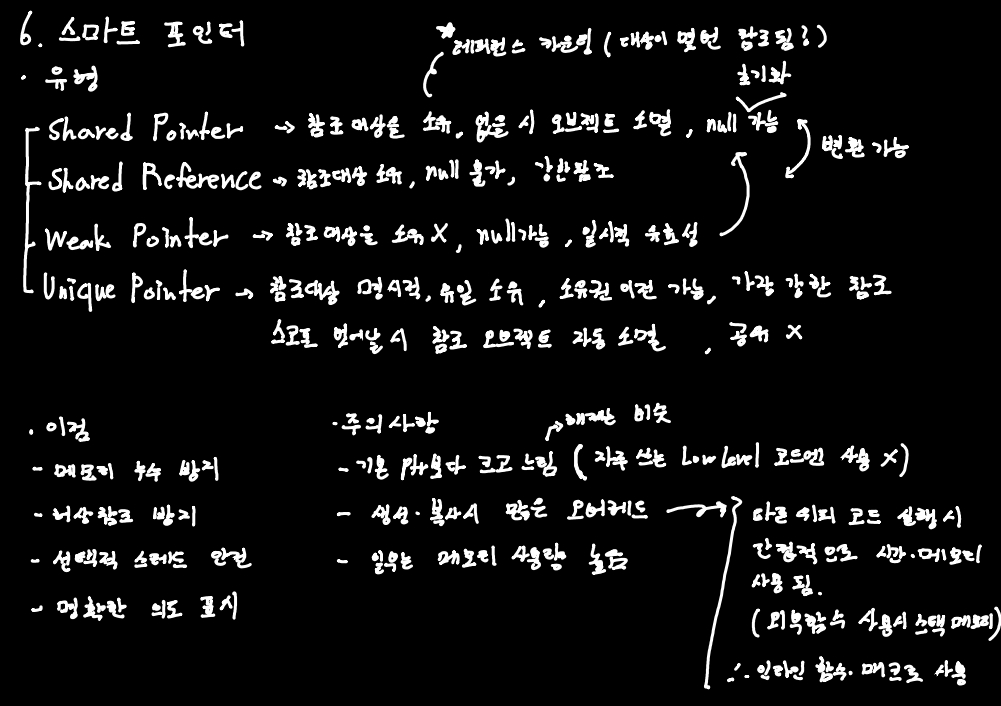 6. 스마트 포인터
* 레퍼런스 카운팅 (대상이 몇번 참조됨?)
· 유형
초기화
Shared Pointer → 참조대상을 소유, 없을 시 오브젝트 소멸, null 가능
변환 가능
Shared Reference → 참조대상 소유, null 불가, 강한참조
Weak Pointer → 참조대상을 소유 X, null가능, 일시적 유효성
Unique Pointer → 참조대상 명시적, 유일 소유, 소유권 이전 가능, 가장 강한 참조
스코프 벗어날 시 참조 오브젝트 자동 소멸, 공유 X
· 이점
- 메모리 누수 방지
- 허상참조 방지
- 선택적 스레드 안전
- 명확한 의도 표시
· 주의사항
→ 해제는 비슷
- 기본 Ptr보다 크고 느림 (자주 쓰는 Low Level 코드엔 사용 X)
- 생성·복사시 많은 오버헤드 →
- 일부는 메모리 사용량 높음
다른 위치 코드 실행 시
간접적으로 시간·메모리
사용 됨.
(외부함수 사용시 스택 메모리)
∴ 인라인 함수·매크로 사용